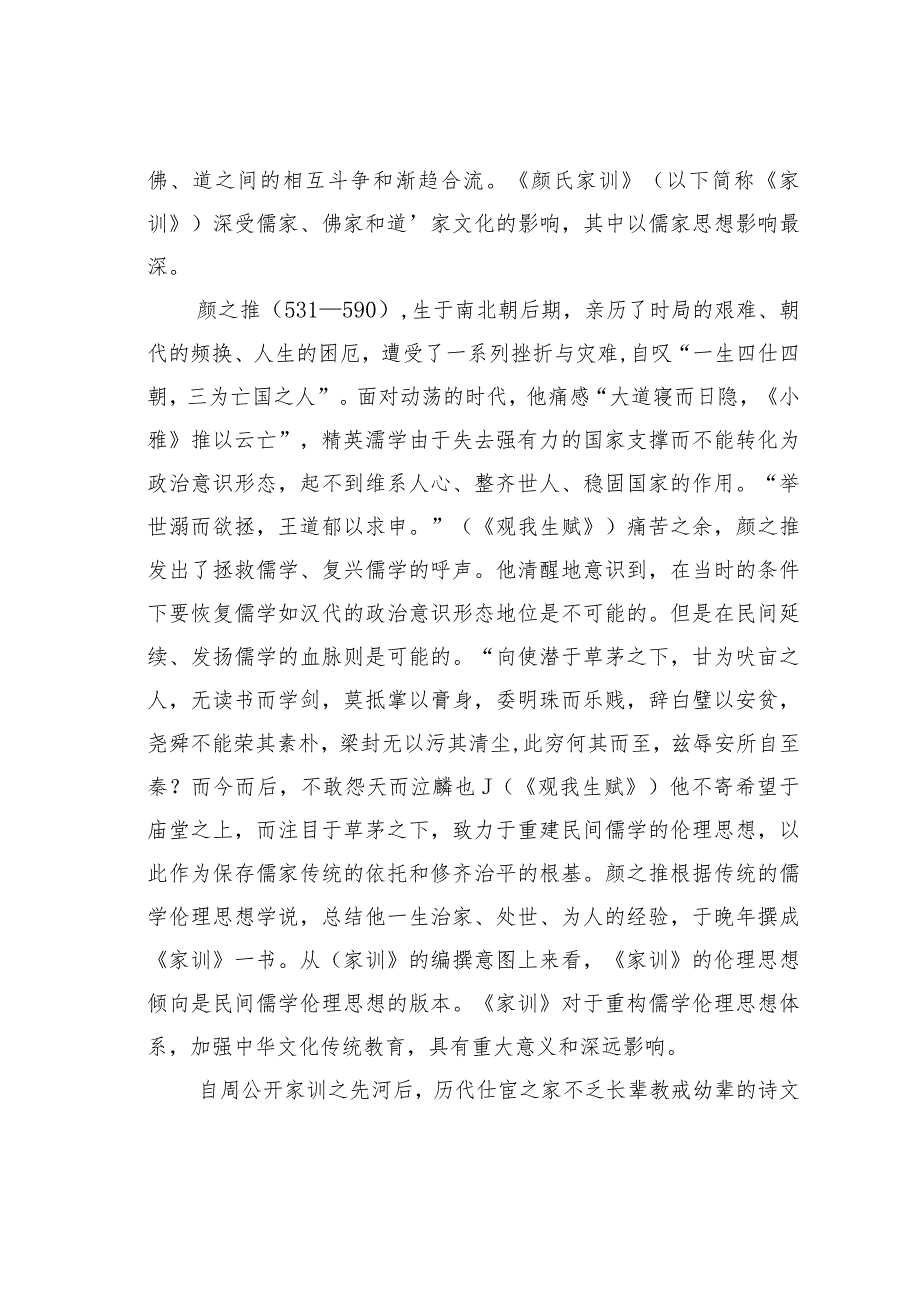 佛、道之间的相互斗争和渐趋合流。《颜氏家训》（以下简称《家
训》）深受儒家、佛家和道’家文化的影响，其中以儒家思想影响最
深。
颜之推（531—590）,生于南北朝后期，亲历了时局的艰难、朝
代的频换、人生的困厄，遭受了一系列挫折与灾难,自叹“一生四仕四
朝，三为亡国之人”。面对动荡的时代，他痛感“大道寝而日隐，《小
雅》推以云亡”，精英濡学由于失去强有力的国家支撑而不能转化为
政治意识形态，起不到维系人心、整齐世人、稳固国家的作用。“举
世溺而欲拯，王道郁以求申。”（《观我生赋》）痛苦之余，颜之推
发出了拯救儒学、复兴儒学的呼声。他清醒地意识到，在当时的条件
下要恢复儒学如汉代的政治意识形态地位是不可能的。但是在民间延
续、发扬儒学的血脉则是可能的。“向使潜于草茅之下，甘为吠亩之
人，无读书而学剑，莫抵掌以膏身，委明珠而乐贱，辞白璧以安贫，
尧舜不能荣其素朴，梁封无以污其清尘,此穷何其而至，兹辱安所自至
秦？而今而后，不敢怨天而泣麟也J（《观我生赋》）他不寄希望于
庙堂之上，而注目于草茅之下，致力于重建民间儒学的伦理思想，以
此作为保存儒家传统的依托和修齐治平的根基。颜之推根据传统的儒
学伦理思想学说，总结他一生治家、处世、为人的经验，于晚年撰成
《家训》一书。从（家训》的编撰意图上来看，《家训》的伦理思想
倾向是民间儒学伦理思想的版本。《家训》对于重构儒学伦理思想体
系，加强中华文化传统教育，具有重大意义和深远影响。
自周公开家训之先河后，历代仕宦之家不乏长辈教戒幼辈的诗文